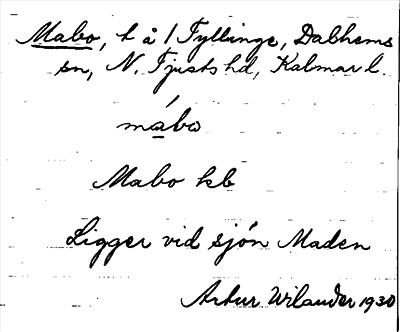 Mabo, t å 1 Fyllinge, Dalhems
sn, N. Tjusts hd, Kalmar l.
mábo
Mabo kb
Ligger vid sjön Maden
Artur Wilander 1930